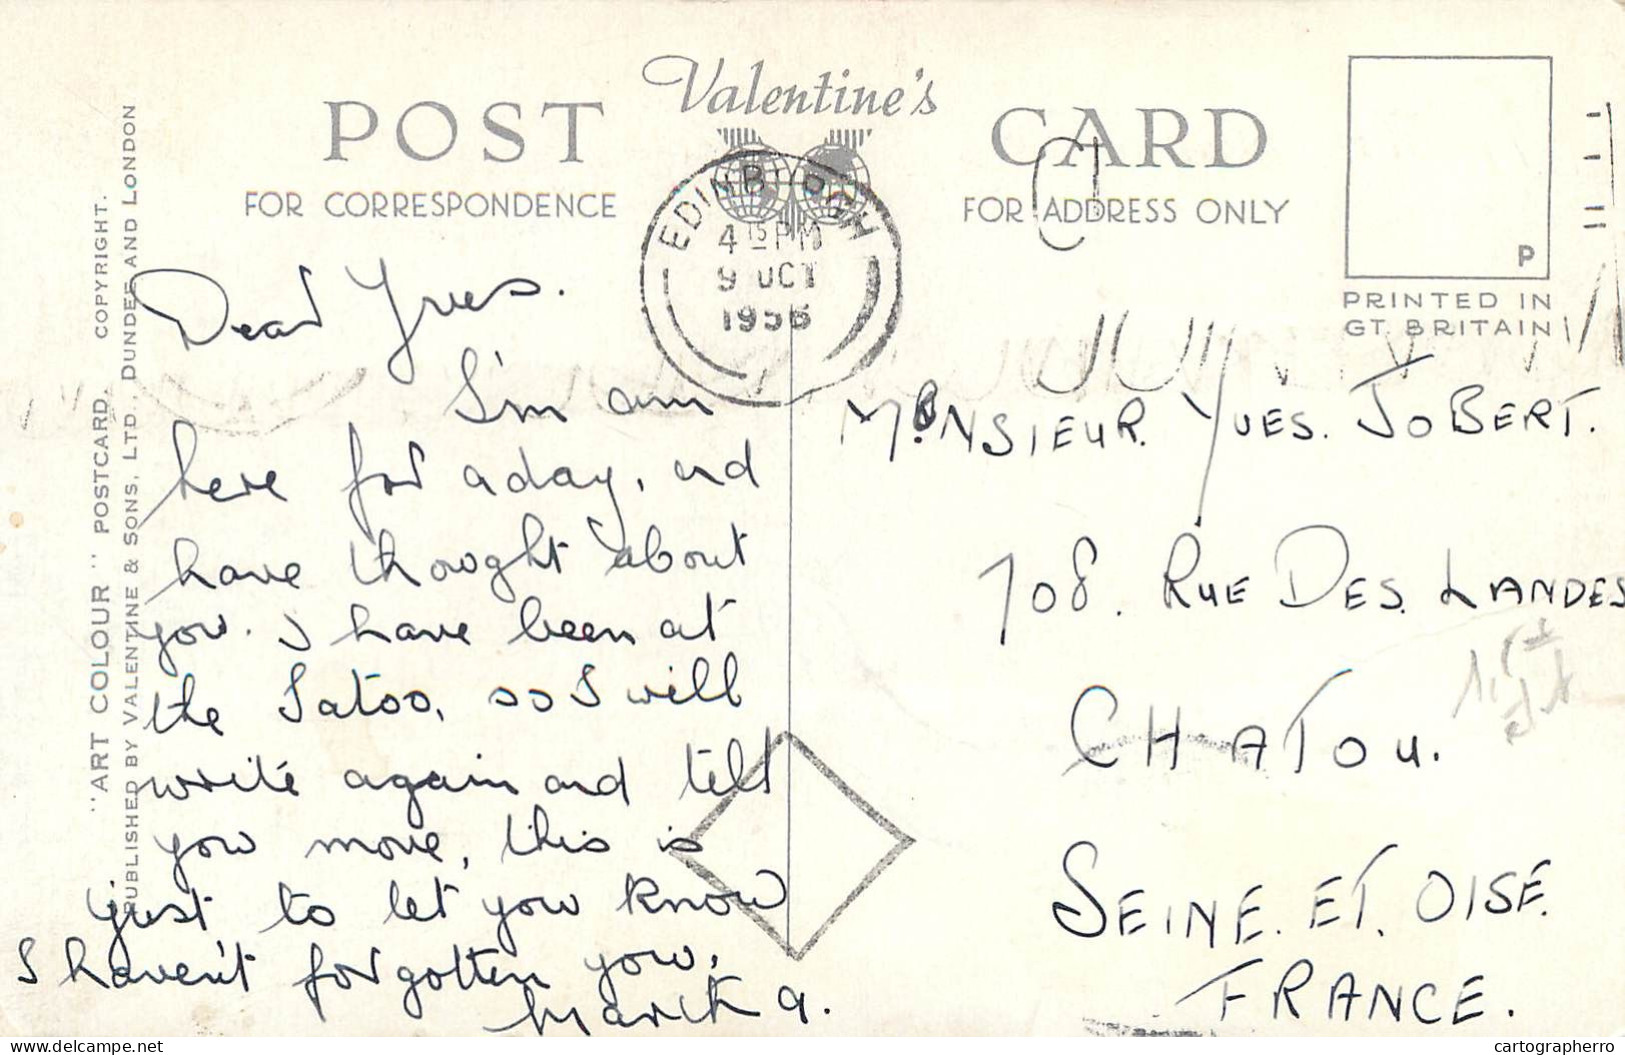 POST Valentine's CARD
FOR CORRESPONDENCE
FOR ADDRESS ONLY
EDINBURGH
4 15 PM
9 OCT
1956
P
PRINTED IN
GT. BRITAIN
"ART COLOUR" POSTCARD. COPYRIGHT.
PUBLISHED BY VALENTINE & SONS, LTD., DUNDEE AND LONDON
Dear Yves.
I'm am
here for a day, and
have thought about
you. I have been at
the Tatoo, so I will
write again and tell
you more, this is
just to let you know
I haven't forgotten you.
MONSIEUR. YVES. JOBERT.
108. RUE DES. LANDES
CHATOU.
SEINE. ET. OISE.
FRANCE.
delcampe.net
cartographerro